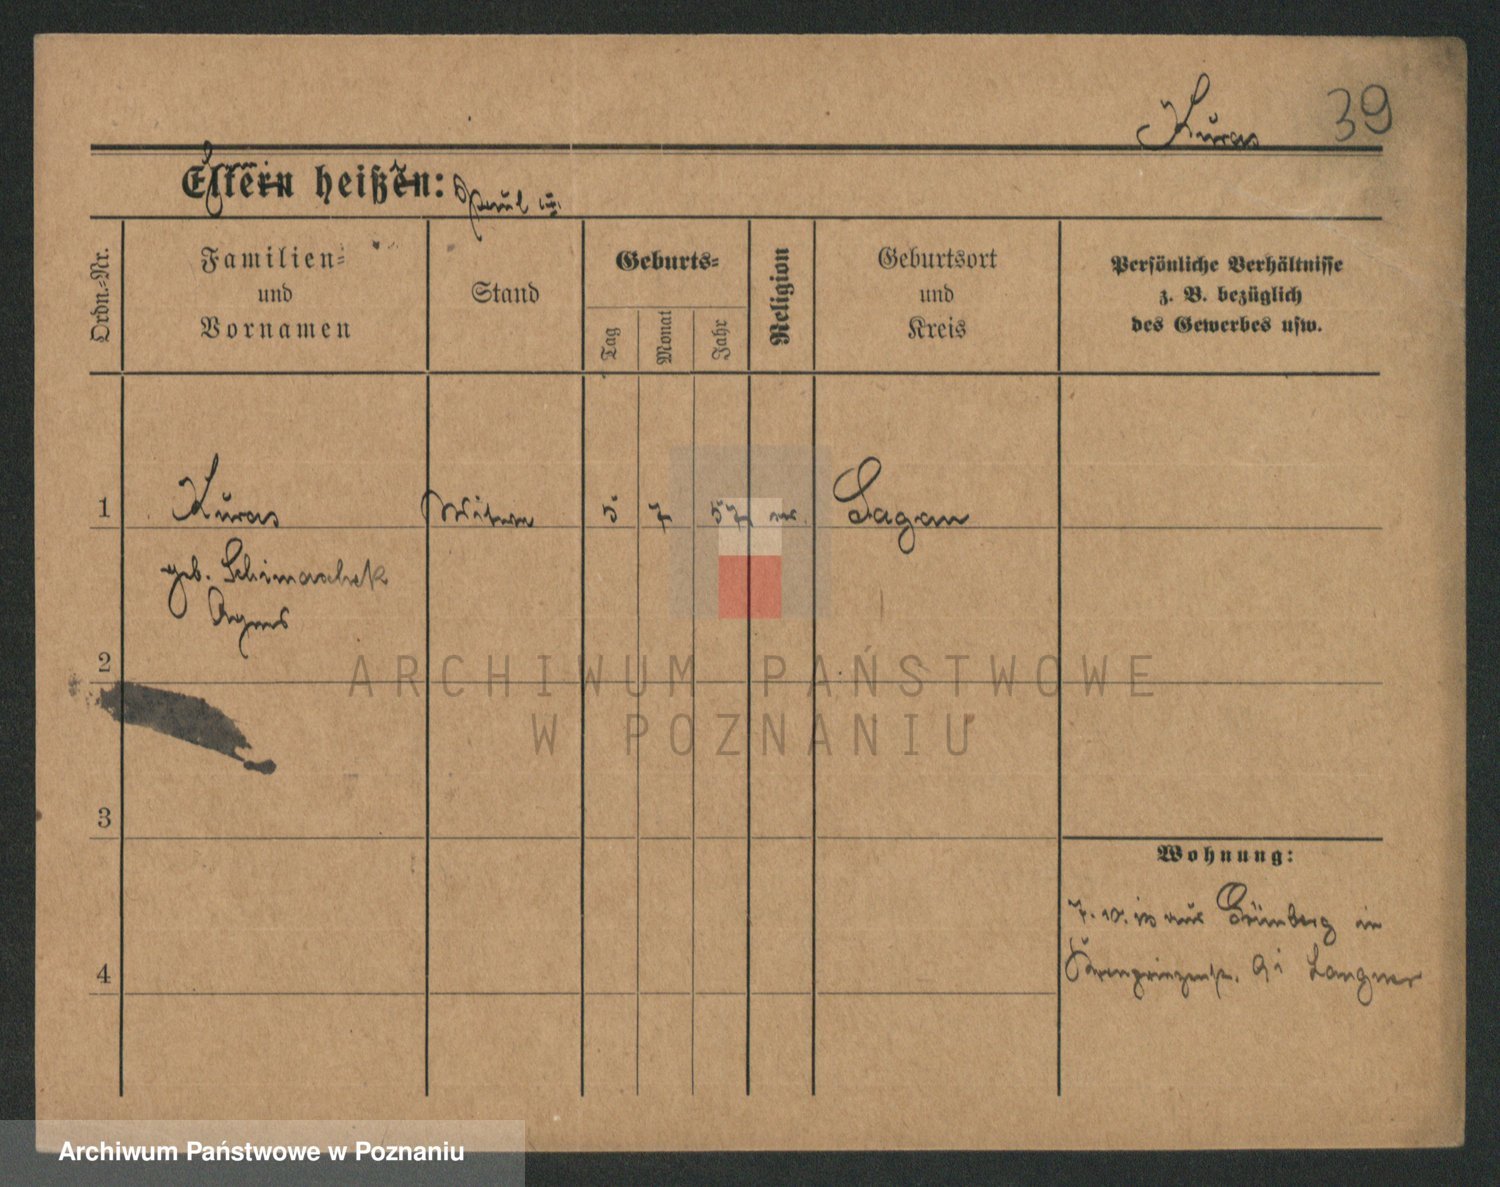 Kuras 39
Eltern heißen: Paul u.
Ordn.-Nr.
Familien-
und
Vornamen
Stand
Geburts-
Tag
Monat
Jahr
Religion
Geburtsort
und
Kreis
Persönliche Verhältnisse
z. B. bezüglich
des Gewerbes usw.
1 Kuras Witwe 5 7 57 Sagan
geb. Schimaschek
Agnes
2
ARCHIWUM PAŃSTWOWE
W POZNANIU
3
Wohnung:
aus Grünberg in
Kronprinzenstr. Langner
4
Archiwum Państwowe w Poznaniu